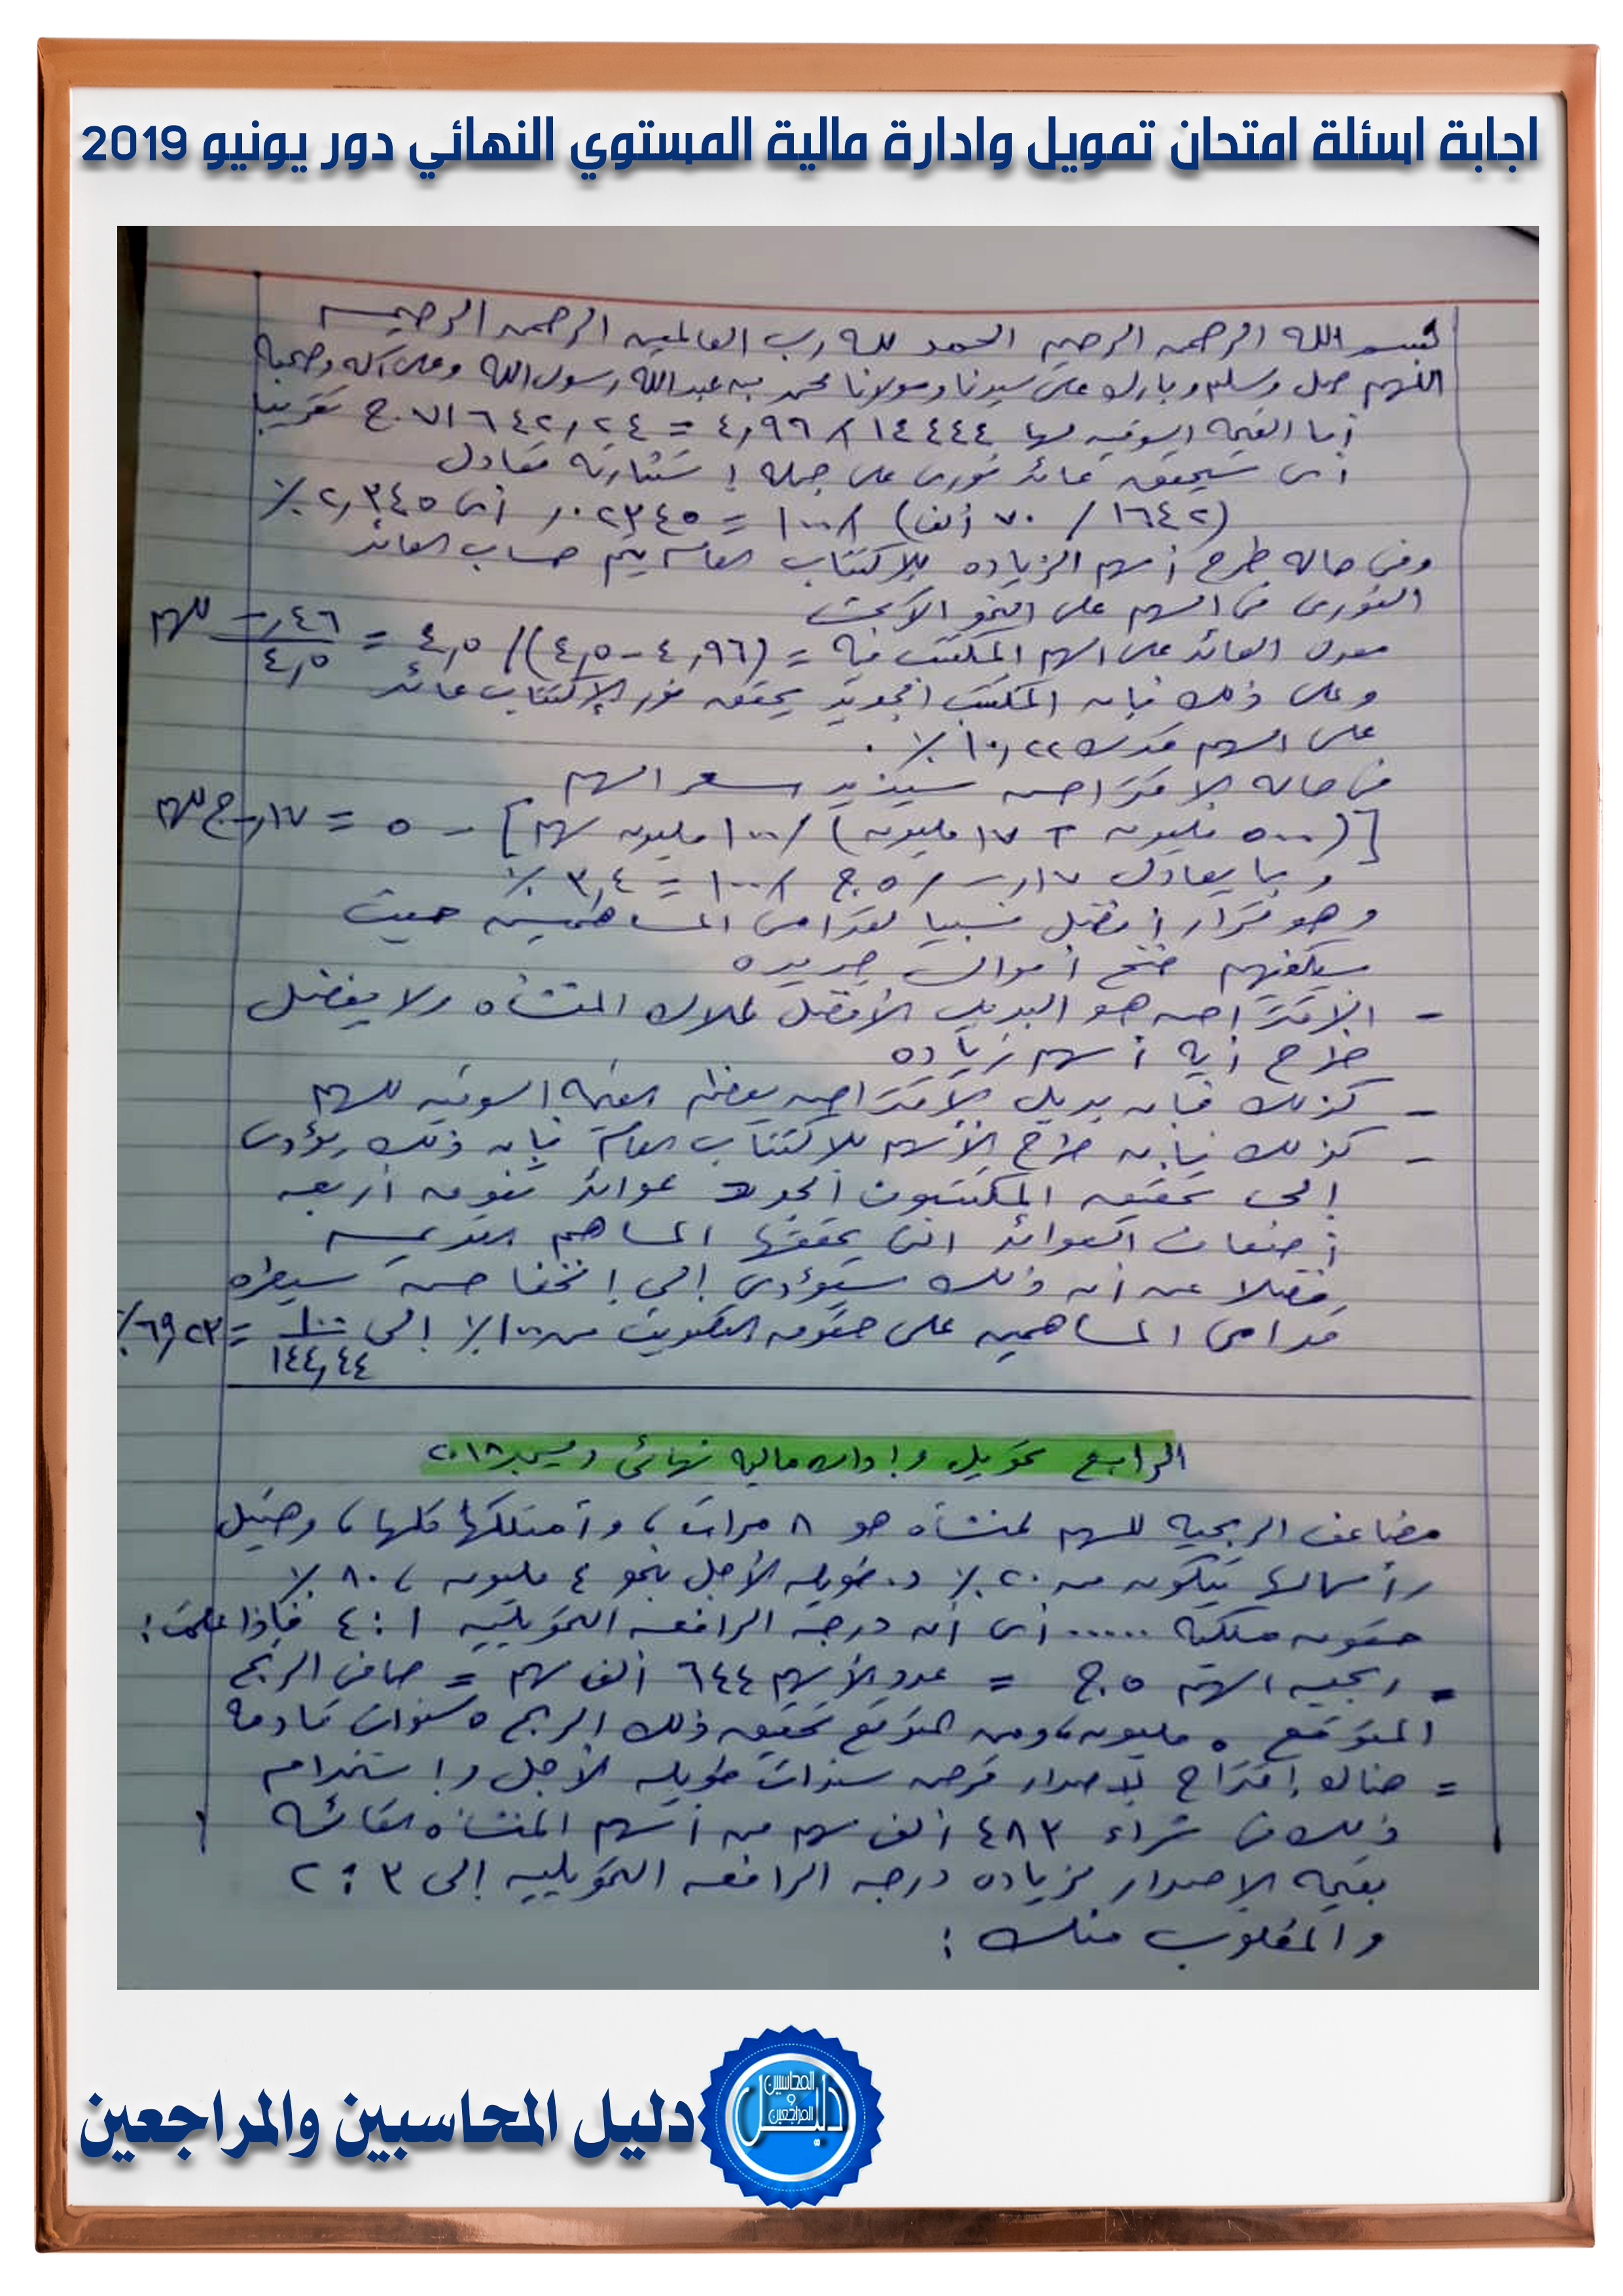 اجابة اسئلة امتحان تمويل وادارة مالية المستوي النهائي دور يونيو 2019
بسم الله الرحمن الرحيم الحمد لله رب العالمين الرحمن الرحيم
اللهم صل وسلم وبارك على سيدنا ومولانا محمد بن عبد الله رسول الله وعلى آله وصحبه
أما القيمة السوقيه لها ١٤٤٤٤ × ٤,٩٦ = ٧١٦٤٢,٢٤ ج تقريبا
أى سيحقق عائد فورى على جملة إستثماراته تعادل
(١٦٤٢ / ٧٠ ألف) × ١٠٠ = ٠,٠٢٣٤٥ أى ٢,٣٤٥ ٪
وفى حاله طرح أسهم الزياده للاكتتاب العام يتم حساب العائد
الفورى فى السهم على النحو الآتى
معدل العائد على السهم المكتتب فيه = (٤,٩٦ - ٤,٥) / ٤,٥ = ٠,٤٦ / ٤,٥ للسهم
وعلى ذلك فإن المكتتب الجديد يحقق فور الإكتتاب عائد
على السهم قدره ١٠,٢٢ ٪ .
فى حاله الاقتراض سيزيد سعر السهم
[(٥٠٠ مليون + ١٧ مليون) / ١٠٠ مليون سهم] - ٥ = ٠,١٧ ج للسهم
وبما يعادل ٠,١٧ / ٥ ج × ١٠٠ = ٣,٤ ٪
وهو قرار أفضل نسبيا لقدامى المساهمين حيث
سيكفيهم ضخ أموال جديده
- الاقتراض هو البديل الأفضل لملاك المنشأه ولا يفضل
طرح أية أسهم زياده
- كذلك فإن بديل الاقتراض يعظم القيمة السوقيه للسهم
- كذلك فإن طرح الأسهم للاكتتاب العام فإن ذلك يؤدى
إلى تحقيق المكتتبون الجدد عوائد تفوق أربعه
أضعاف العوائد التى يحققها المساهم القديم
فضلا عن أن ذلك سيؤدى إلى إنخفاض سيطره
قدامى المساهمين على حقوق التصويت من ١٠٠٪ إلى ١٠٠ / ١٤٤,٤٤ = ٦٩,٢٣٪
الرابع تمويل وإداره ماليه نهائى ديسمبر ٢٠١٨
مضاعف الربحيه للسهم لمنشأه هو ٨ مرات ، وهيكل
رأسمالها يتكون من ٢٠ ٪ د. طويله الأجل بنحو ٤ مليون ، ٨٠ ٪
حقوق ملكيه ..... أى أن درجة الرافعه التمويليه ١ : ٤ فإذا علمت :
- ربحيه السهم ٥ ج = عدد الأسهم ٦٤٤ ألف سهم = صافى الربح
المتوقع ٥ مليون، ومن المتوقع تحقيق ذلك الربح ٥ سنوات قادمه
= هناك إقتراح لإصدار قرض سندات طويله الأجل وإستخدام
ذلك فى شراء ٤٨٣ ألف سهم من أسهم المنشأه القائمه
بقيمه الإصدار لزياده درجه الرافعه التمويليه إلى ٣ : ٢
والمطلوب منك :
دليل المحاسبين والمراجعين
دليل
المحاسبين
و
المراجعين